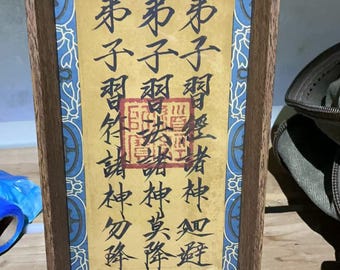 弟子習經諸神迴避
弟子習法諸神莫降
弟子習符諸神勿降